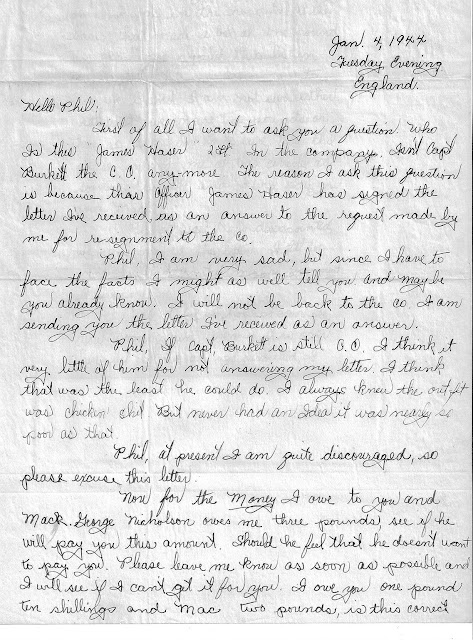 Jan. 4, 1944
Tuesday Evening
England.
Hello Phil:
First of all I want to ask you a question. Who
Is this James Haser 2-Lt. In the company. Isn't Capt
Burkett the C.O. any-more The reason I ask this question
is because this Officer James Haser has signed the
letter I've received, as an answer to the request made by
me for re-signment to the Co.
Phil, I am very sad, but since I have to
face the facts I might as well tell you and maybe
you already know. I will not be back to the co. I am
sending you the letter I've received as an answer.
Phil, If Capt, Burkett is still C.O. I think it
very little of him for not answering my letter. I think
that was the least he could do. I always knew the outfit
was chicken But never had an Idea it was nearly so
poor as that.
Phil, at present I am quite discouraged, so
please excuse this letter.
Now for the Money I owe to you and
Mack. George Nicholson owes me three pounds, see if he
will pay you this amount. Should he feel that he doesn't want
to pay you. Please leave me know as soon as possible and
I will see if I can't get it for you. I owe you one pound
ten shillings and Mac two pounds, is this correct